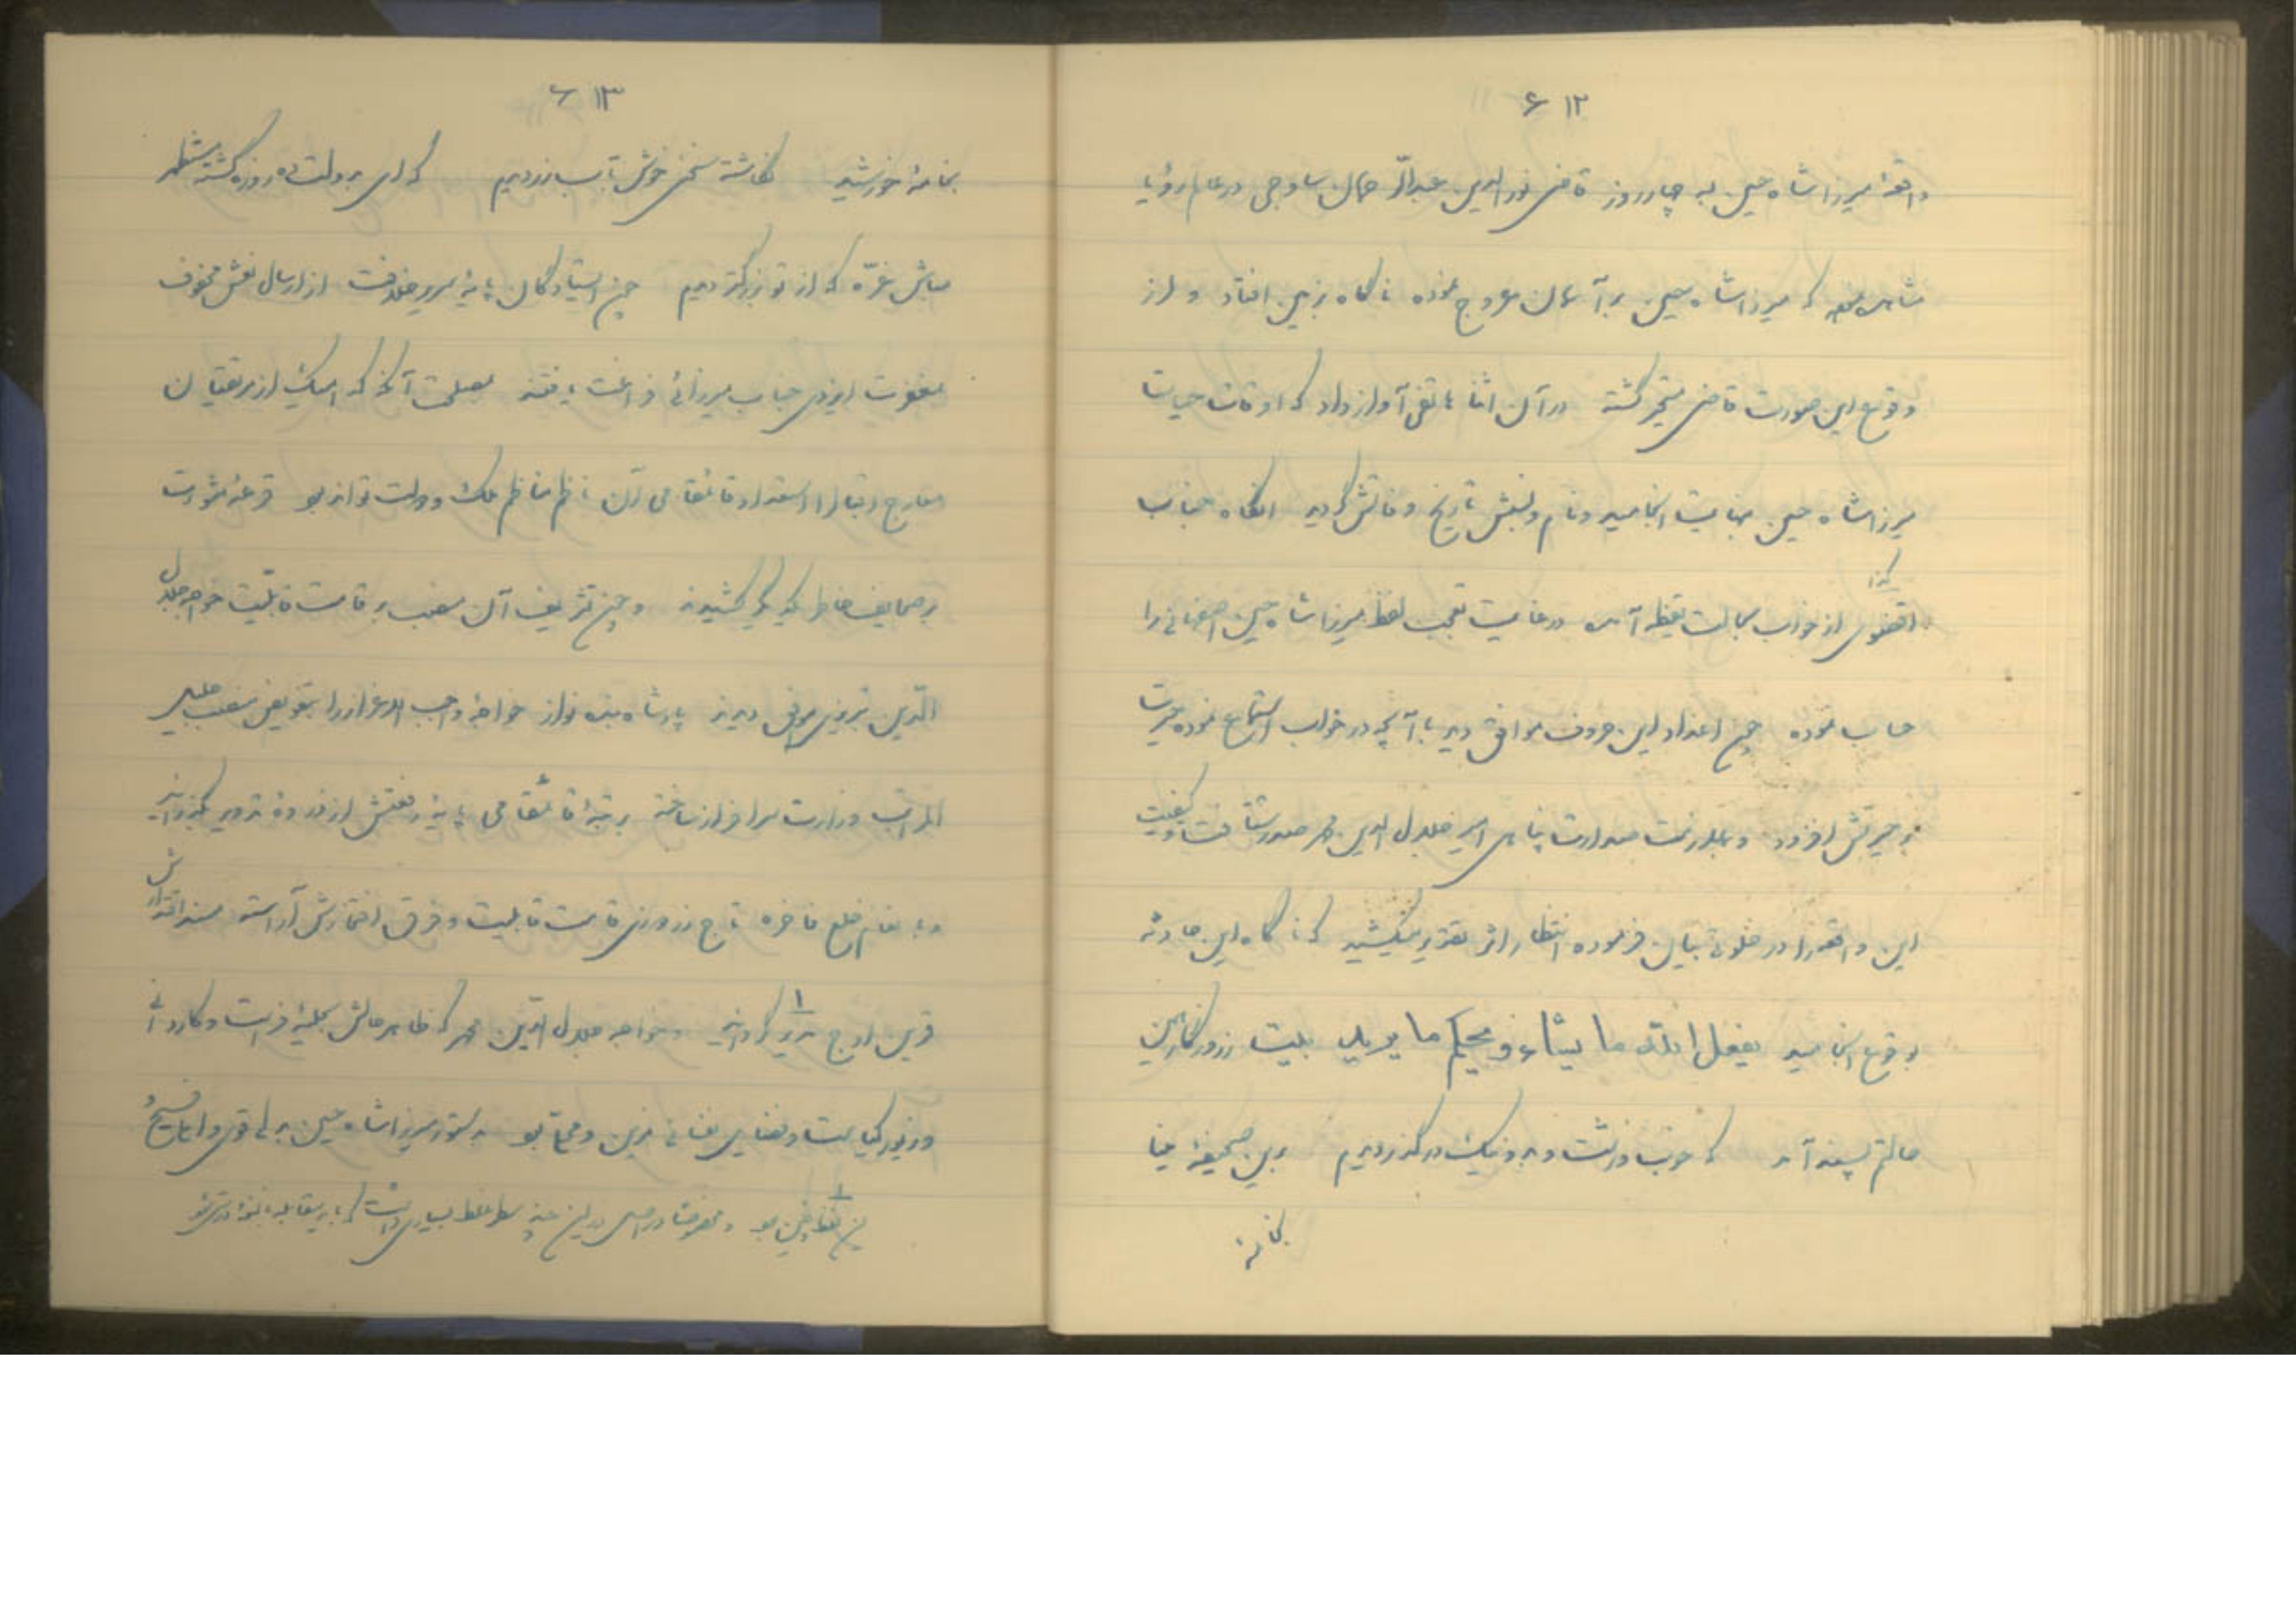 ۶۱۲
واقعهٔ میرزا شاه حسین به چهار روز قاضی نورالدین عبدالرحمان ساوجی در عالم رؤیا
مشاهده نمود که میرزا شاه حسین بر آسمان عروج نموده ناگاه بزمین افتاد و از
وقوع این صورت قاضی متحیر گشته در آن اثنا هاتفی آواز داد که اوقات حیات
میرزا شاه حسین بنهایت انجامید و نام و لقبش تاریخ وفاتش گردید آنگاه جناب
کذا
اقضوی از خواب بحالت یقظه آمده در غایت تعجب لفظ میرزا شاه حسین اصفهانی را
حساب نموده چون اعداد این حروف موافق دید با آنچه در خواب استماع نموده حیرت
بر حیرتش افزود و بملازمت صدارت پناهی امیر جلال الدین محمد صدر شتافت و کیفیت
این واقعه را در خلوت بیان فرموده انتظار اثر تقدیر میکشید که ناگاه این حادثه
بوقوع انجامید یفعل الله ما یشاء و یحکم ما یرید بیت ز روزگار همین
حالتم پسند آمد که خوب و زشت و بد و نیک در گذر دیدم برین صحیفهٔ مینا
بخامهٔ
۶۱۳
بخامهٔ خورشید نگاشته سخنی خوش بآب زر دیدم که ای بدولت ده روزه گشته مستظهر
مباش غره که از تو بزرگتر دیدم چون ایستادگان پایهٔ سریر خلافت از ارسال نعش محفوف
بمغفرت ایزدی جناب میرزائی فراغت یافتند مصلحت آنکه که هر یک از مرتقیان
معارج اقبال را استعداد قائمقامی آن ناظم مناظم ملک و دولت تواند بود قرعهٔ مشورت
بر صحایف خاطر یکدیگر کشیدند و چون تشریف آن منصب بر قامت قابلیت خواجه جلال
الدین تبریزی موافق دیدند پادشاه بنده نواز خواجهٔ واجب الاعزاز را بتفویض منصب جلیل
المراتب وزارت سرافراز ساخته برتبهٔ قائمقامی پایهٔ رفعتش از ذروهٔ تدویر بگذرانید
و بانعام خلع فاخره تاج زردوزی قامت قابلیت و فرق افتخارش آراسته مسند اقتدارش
قرین اوج تدویر گردانید و خواجه جلال الدین محمد که ظاهر حالش بحلیهٔ فراست و کاردانی
و زیور کیاست و نفایس نفسانی مزین و محلی بود بدستور میرزا شاه حسین بدلی قوی و املی فسیح